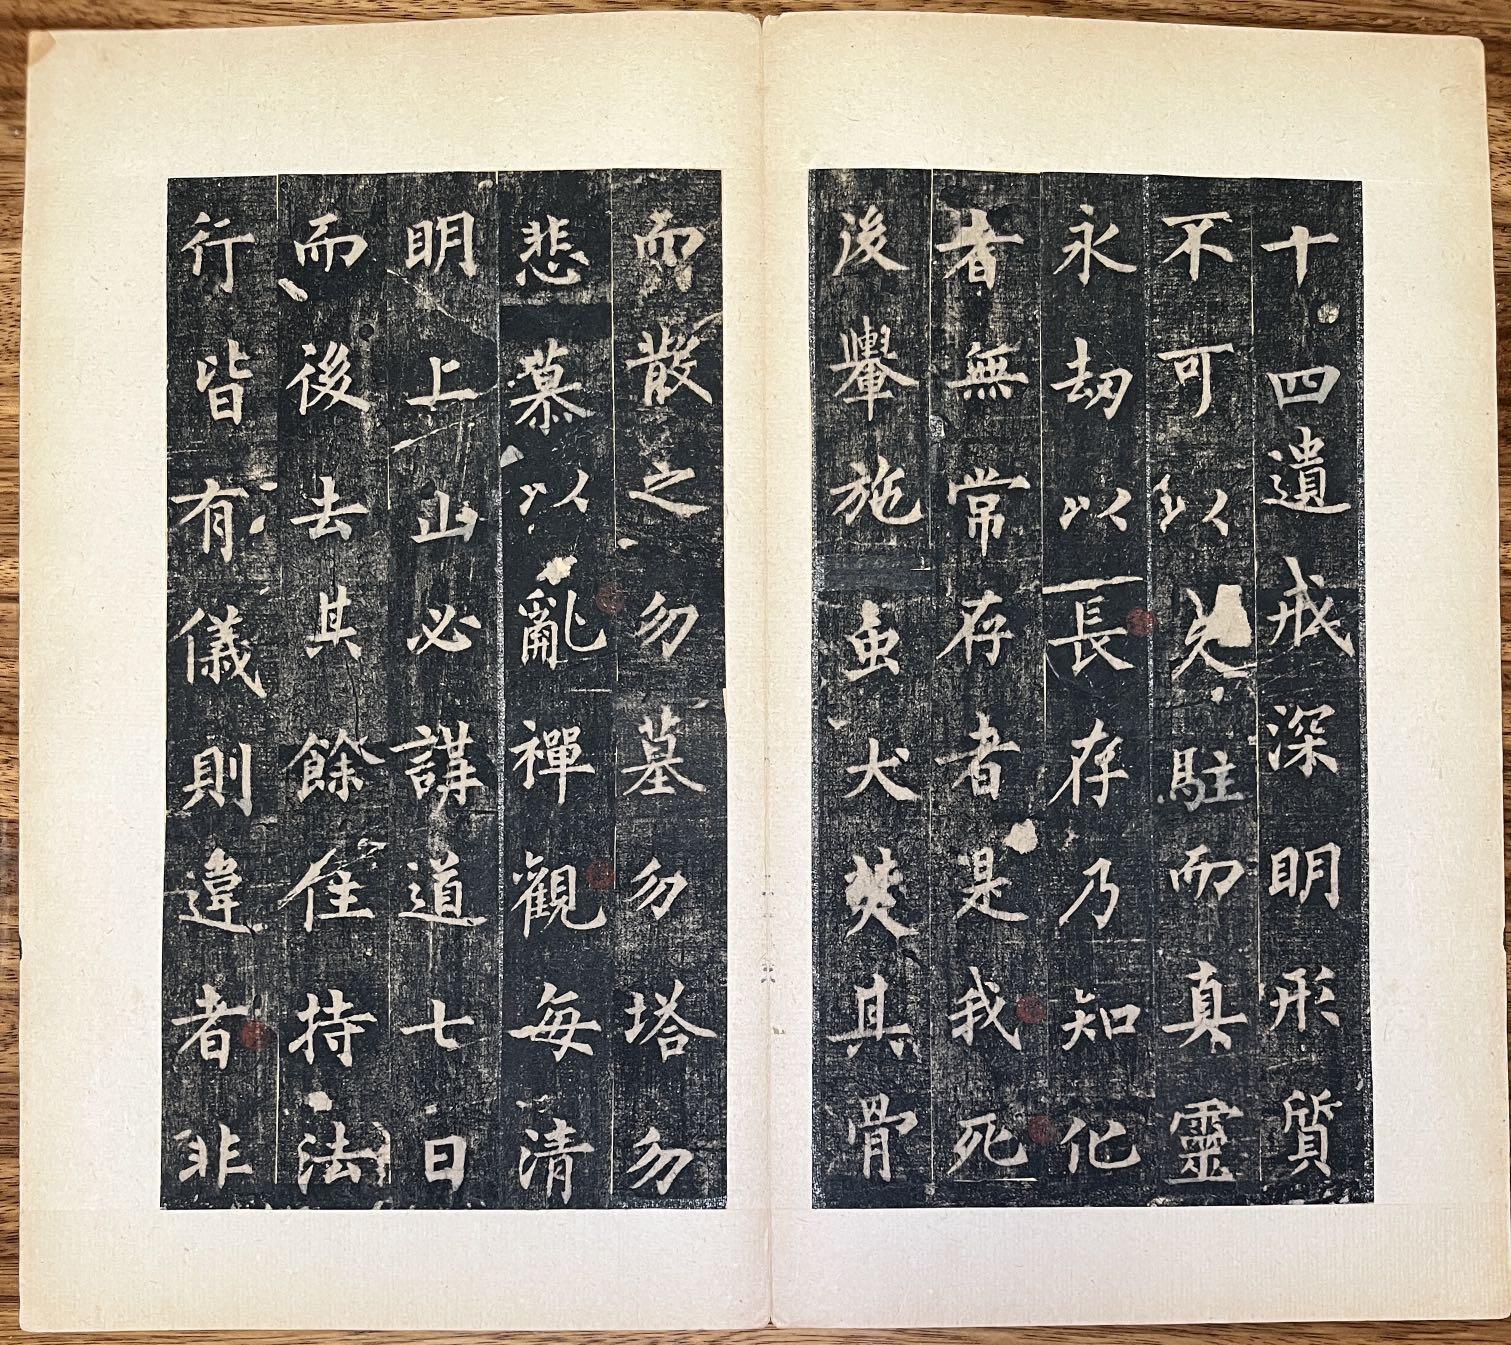 十四遺戒深明形質
不可以久駐而真靈
永劫以長存乃知化
者無常存者是我死
後轝施虫犬焚其骨
而散之勿墓勿塔勿
悲慕以亂禪觀每清
明上山必講道七日
而後去其餘住持法
行皆有儀則違者非